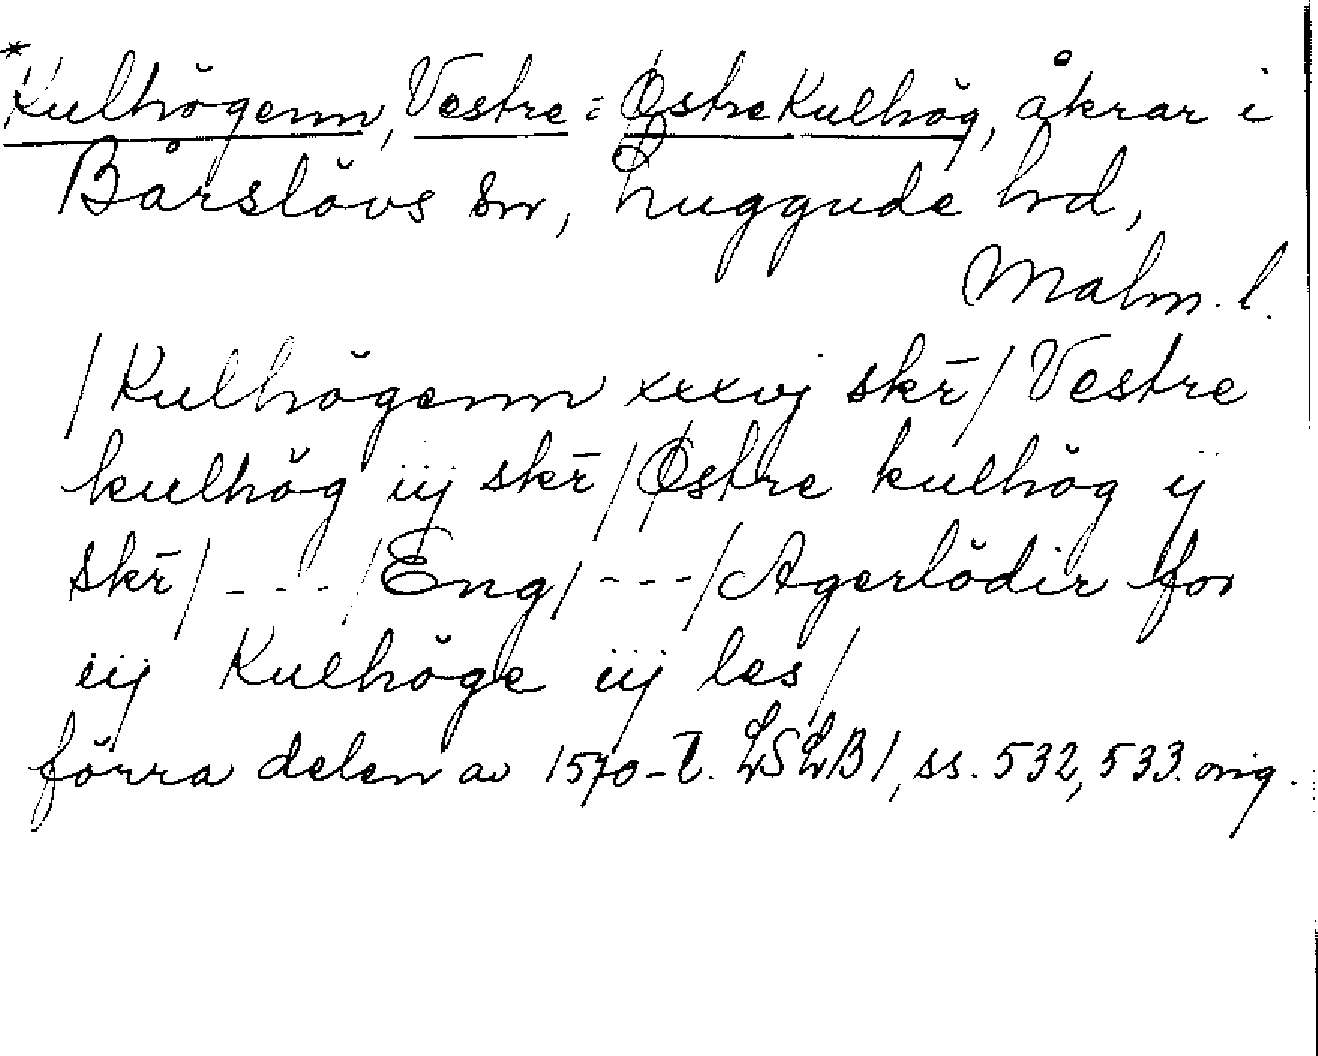 *Kulhögenn, Vestre = Østre Kulhög, åkrar i
Bårslövs sn, Luggude hd,
Malm. l.
/Kulhögenn xxxvj skr̄/Vestre
kulhög iij skr̄/Østre kulhög ij
skr̄/---/Eng/---/Agerlödir for
iij Kulhöge iij les/
förra delen av 1570-t. LSLB 1, ss. 532, 533. orig.